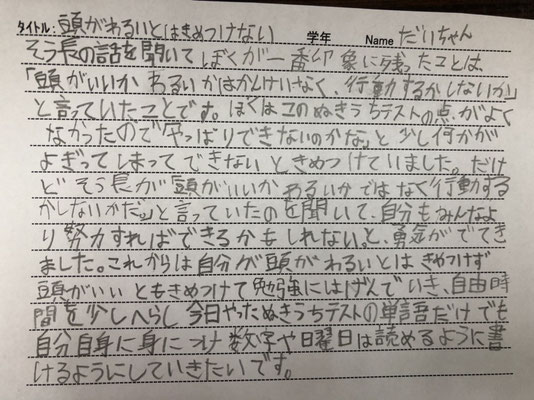 タイトル: 頭がわるいとはきめつけない 学年 Name だいちゃん
そう長の話を聞いて ぼくが一番印象に残ったことは
「頭がいいか わるいかはかんけいなく、行動するかしないか」
と言っていたことです。ぼくはこのぬきうちテストの点がよく
なかったので「やっぱりできないのかな」と少し何かが
よぎってしまって できない ときめつけていました。だけ
ど そう長が「頭がいいか わるいかではなく行動する
かしないかだ。」と言っていたのを聞いて、自分もみんなよ
り努力すればできるかもしれない。と、勇気がでてき
ました。これからは自分が頭がわるいとは きめつけず
頭がいい ともきめつけて勉強にはげんでいき、自由時
間を少しへらし 今日やったぬきうちテストの単語だけでも
自分自身に身につけ 数字や日曜日は読めるように書
けるようにしていきたいです。